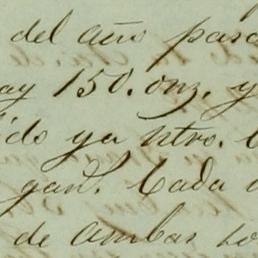 del año pasa
ay 150. onz. y
ido ya ntro.
gan. Cada
de ambas